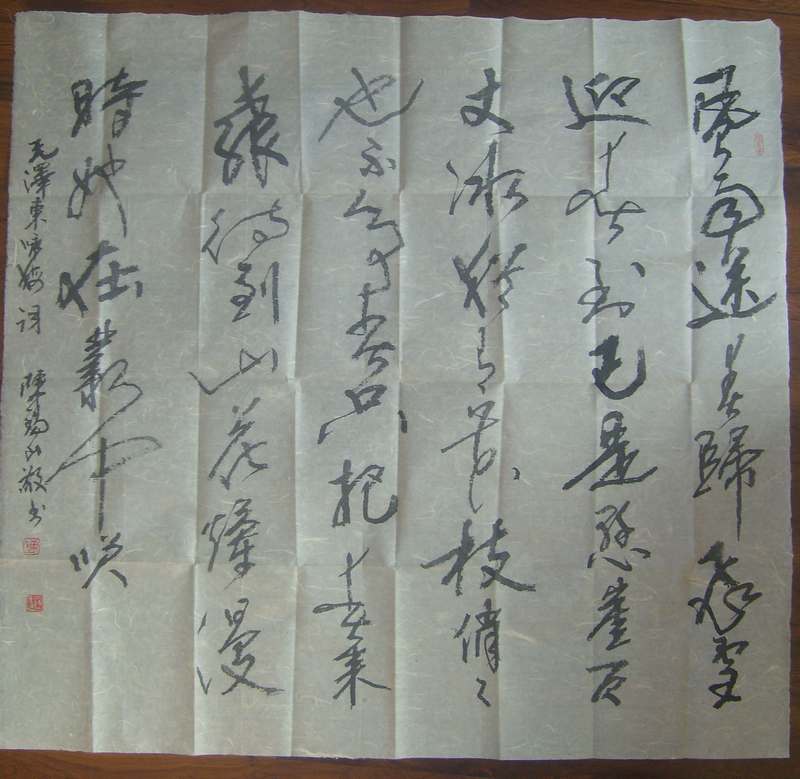 風雨送春歸飛雪
迎春到已是懸崖百
丈冰猶有花枝俏〻
也不爭春只把春來
報待到山花爛漫
時她在叢中咲
毛澤東咏梅詞 陳錫山敬书